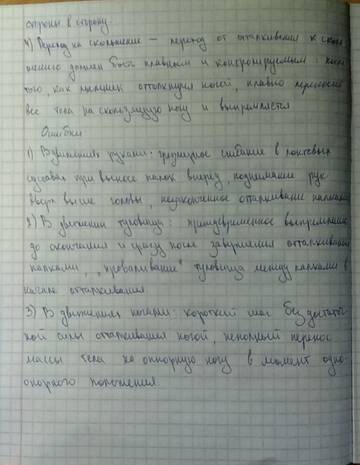 стороны в сторону.
4) Переход на скольжение – переход от отталкивания к сколь
жению должен быть плавным и контролируемым: после
того, как лыжник оттолкнулся ногой, плавно переносит
вес тела на скользящую ногу и выпрямляется
Ошибки
1) В движениях руками: чрезмерное сгибание в локтевых
суставах при выносе палок вперед, поднимание рук
выше головы, незаконченное отталкивание палками
2) В движении туловища: преждевременное выпрямление
до окончания и сразу после завершения отталкивания
палками, "проваливание" туловища между палками в
начале отталкивания
3) В движениях ногами: короткий шаг без достаточ
ной силы отталкивания ногой, неполный перенос
массы тела на опорную ногу в момент одно
опорного положения